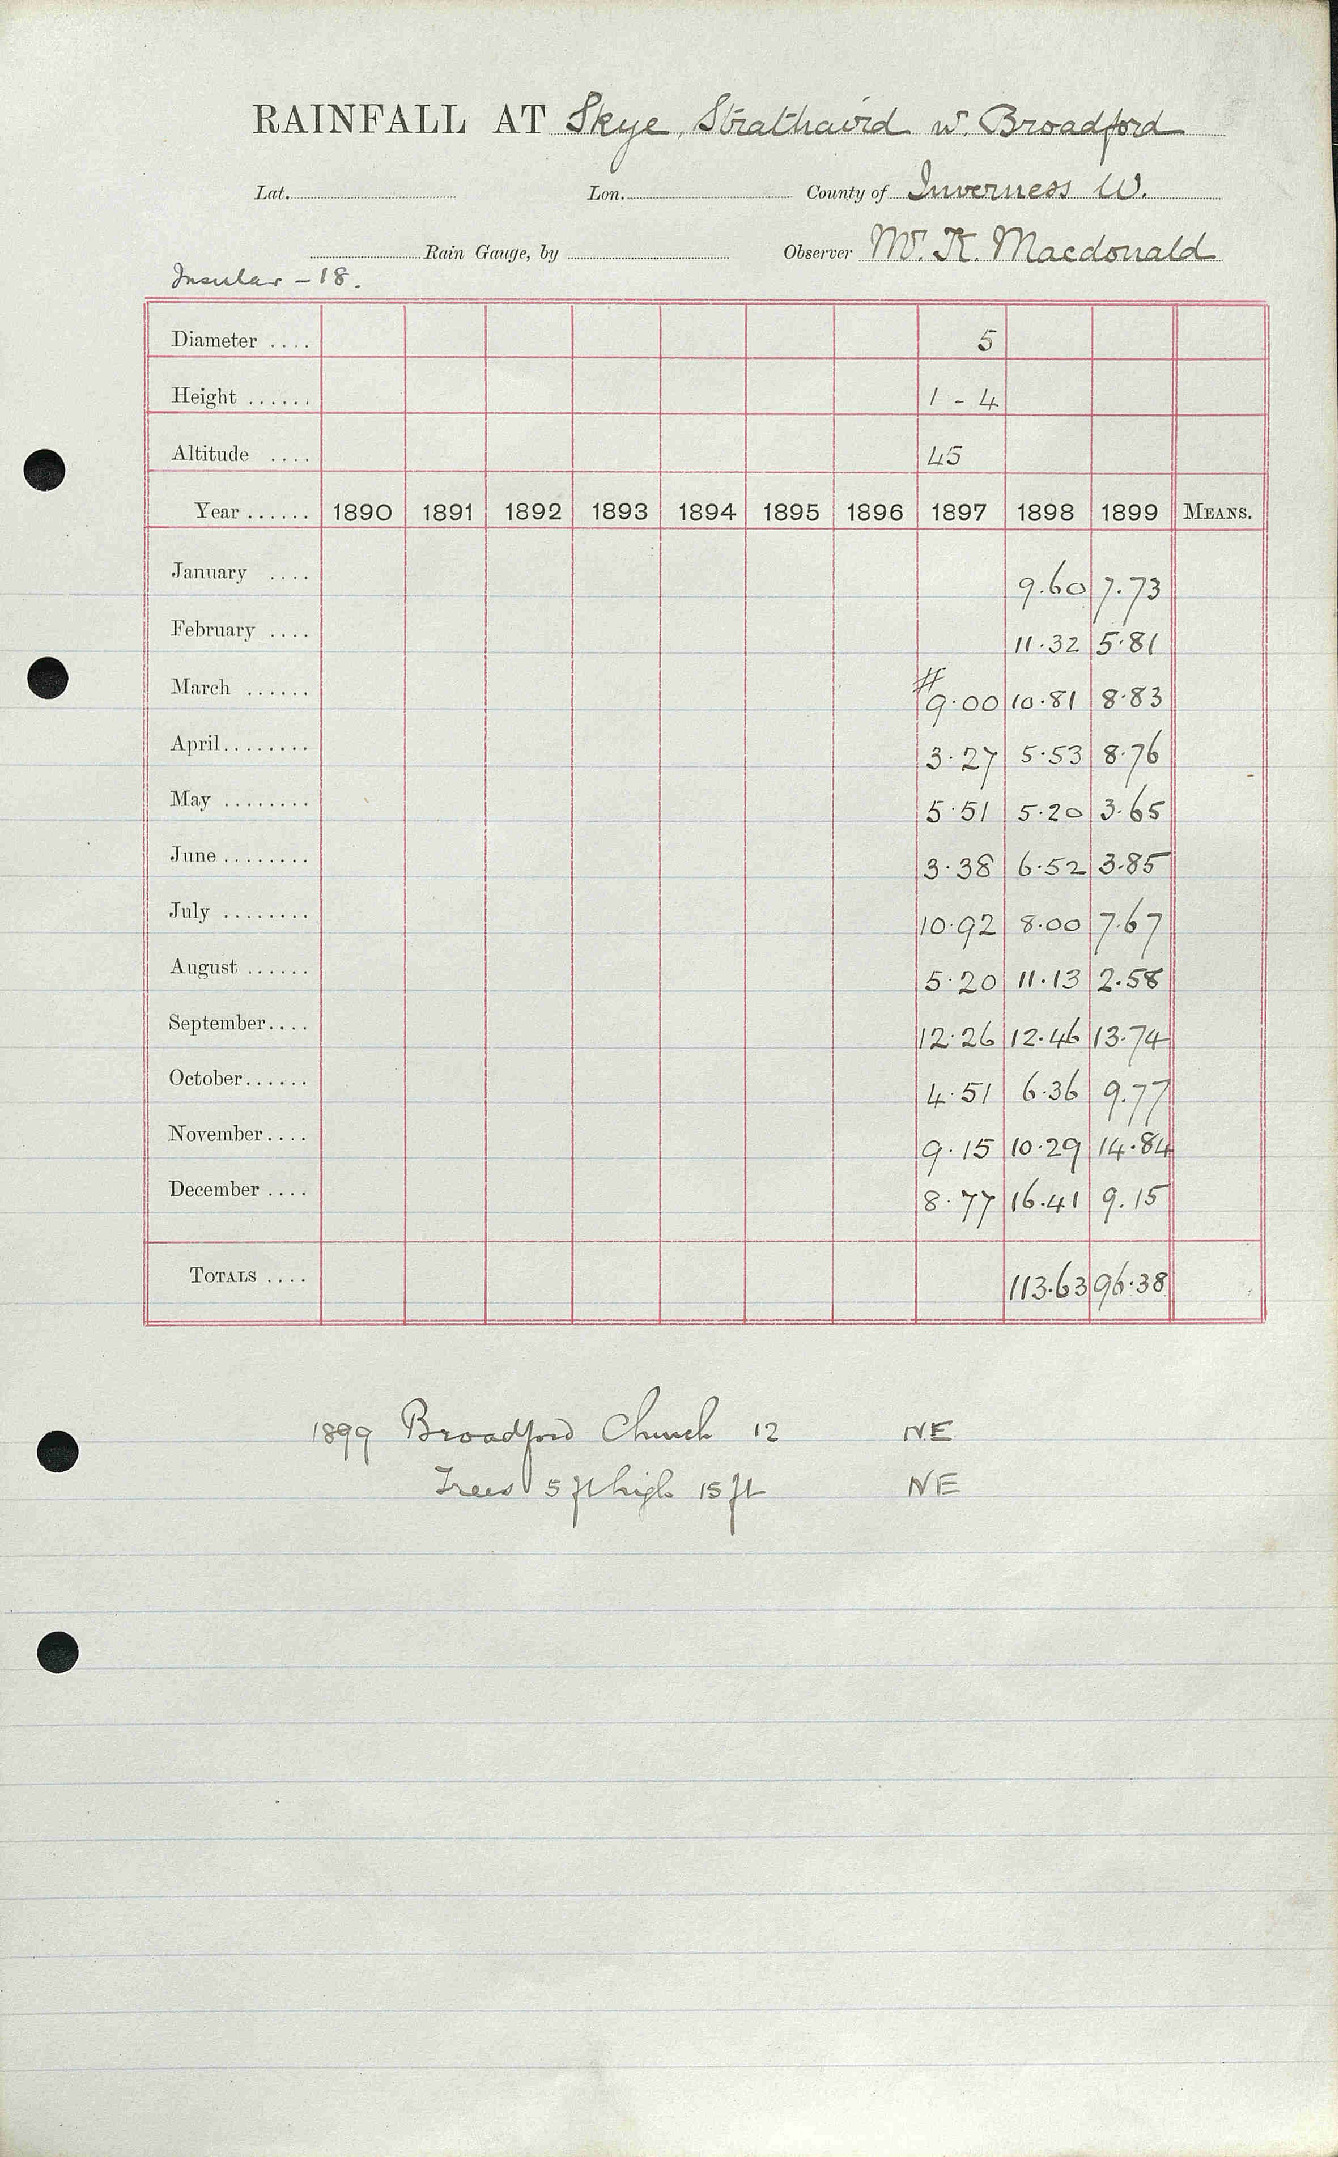 RAINFALL AT Skye, Strathaird w. Broadford
Lat. Lon. County of Inverness W.
Rain Gauge, by Observer Mr. K. Macdonald
Insular - 18.
Diameter .... 5
Height ...... 1 - 4
Altitude .... 45
Year ...... 1890 1891 1892 1893 1894 1895 1896 1897 1898 1899 MEANS.
January .... 9.60 7.73
February .... 11.32 5.81
March ...... # 9.00 10.81 8.83
April........ 3.27 5.53 8.76
May ........ 5.51 5.20 3.65
June ........ 3.38 6.52 3.85
July ........ 10.92 8.00 7.67
August ...... 5.20 11.13 2.58
September.... 12.26 12.46 13.74
October...... 4.51 6.36 9.77
November.... 9.15 10.29 14.84
December .... 8.77 16.41 9.15
TOTALS .... 113.63 96.38
1899 Broadford Church 12 NE
Trees 5 ft high 15 ft NE